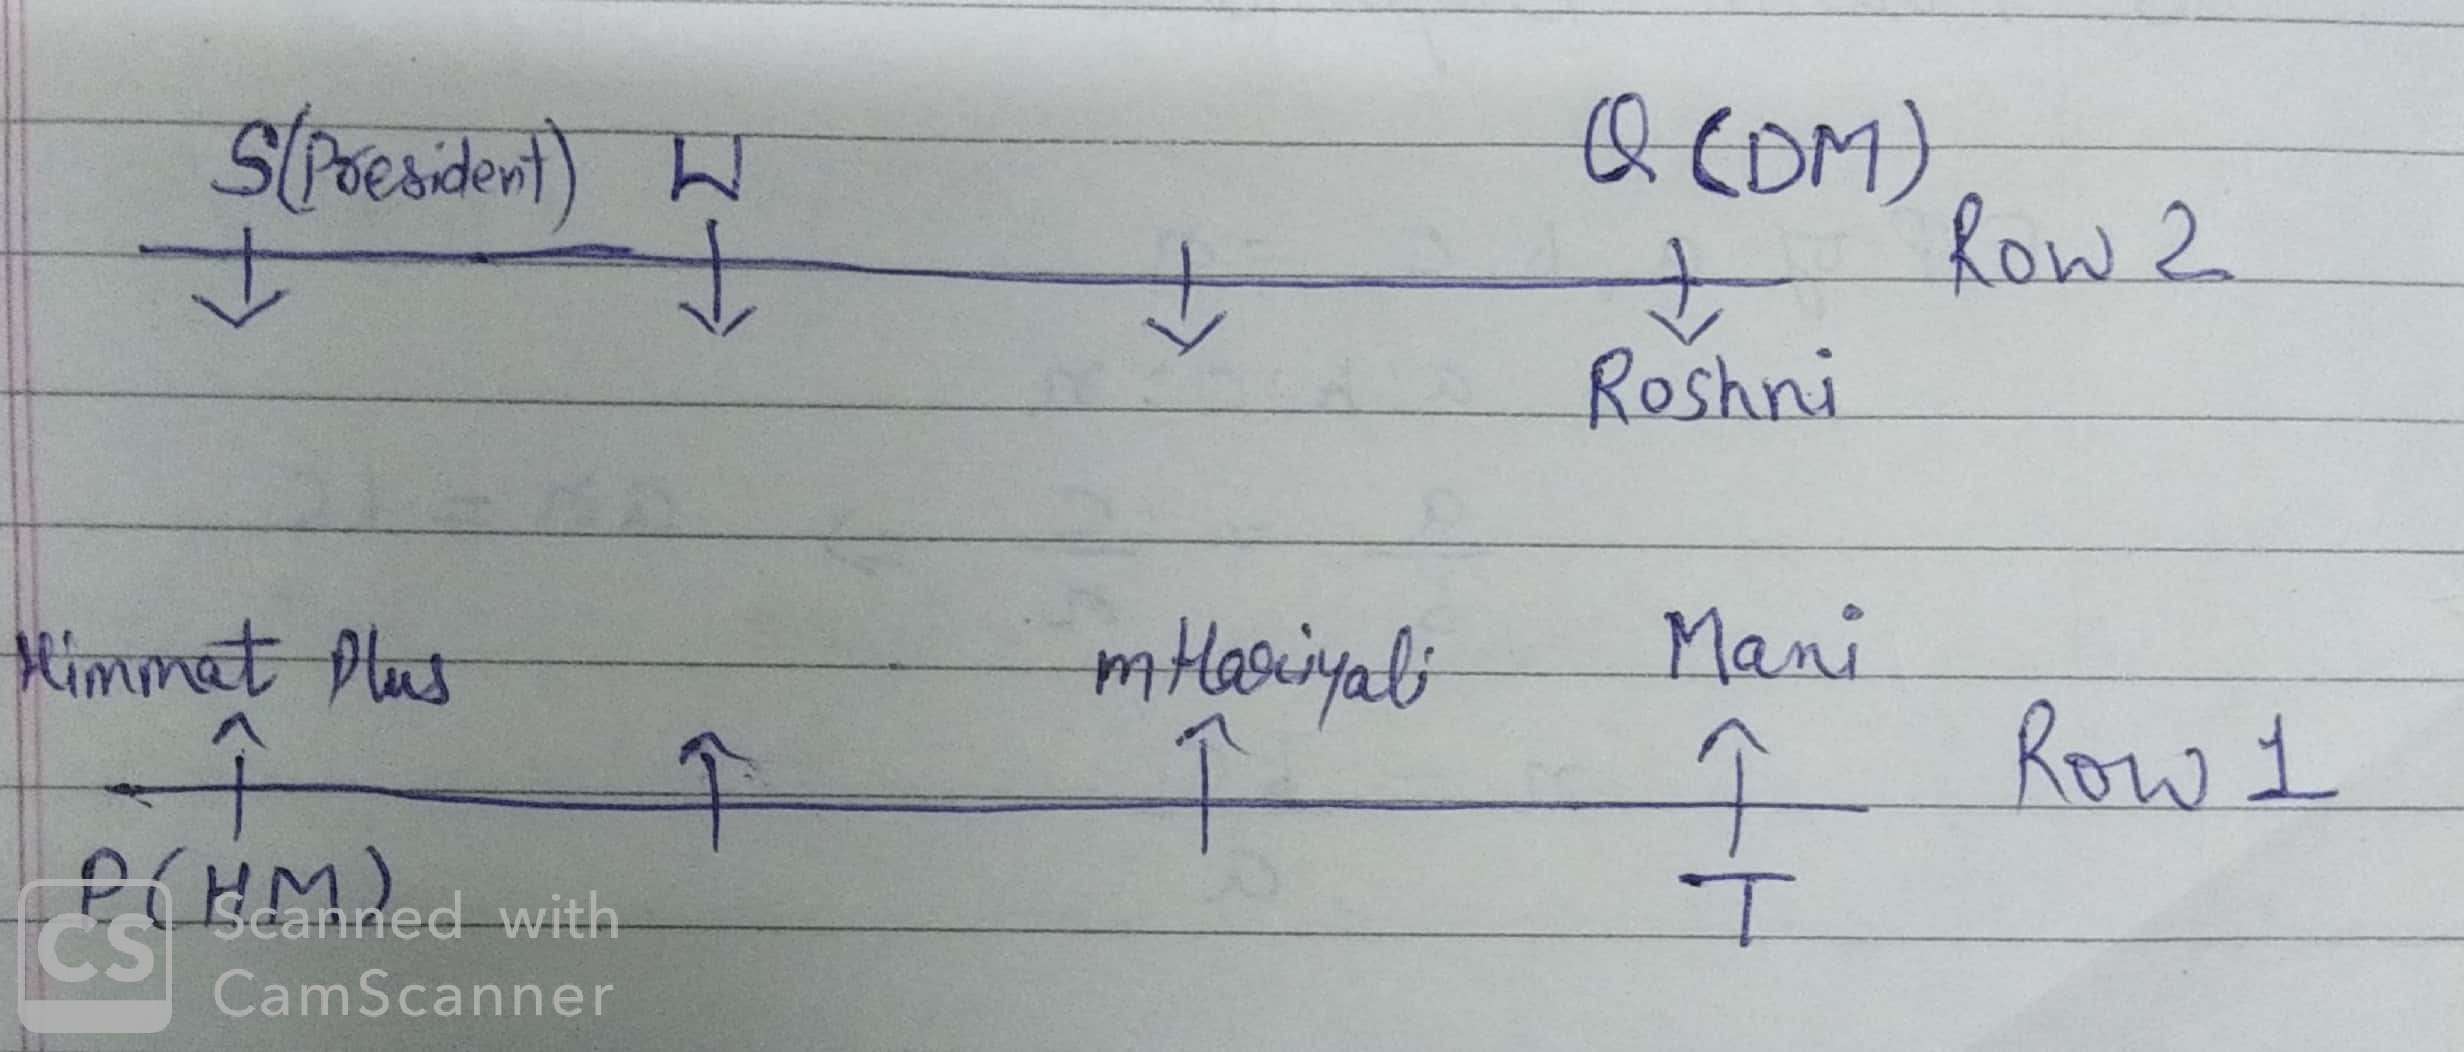 S(President) W Q (DM)
Row 2
Roshni
Himmat Plus mHariyali Mani
Row 1
P(HM) T
CS Scanned with
CamScanner